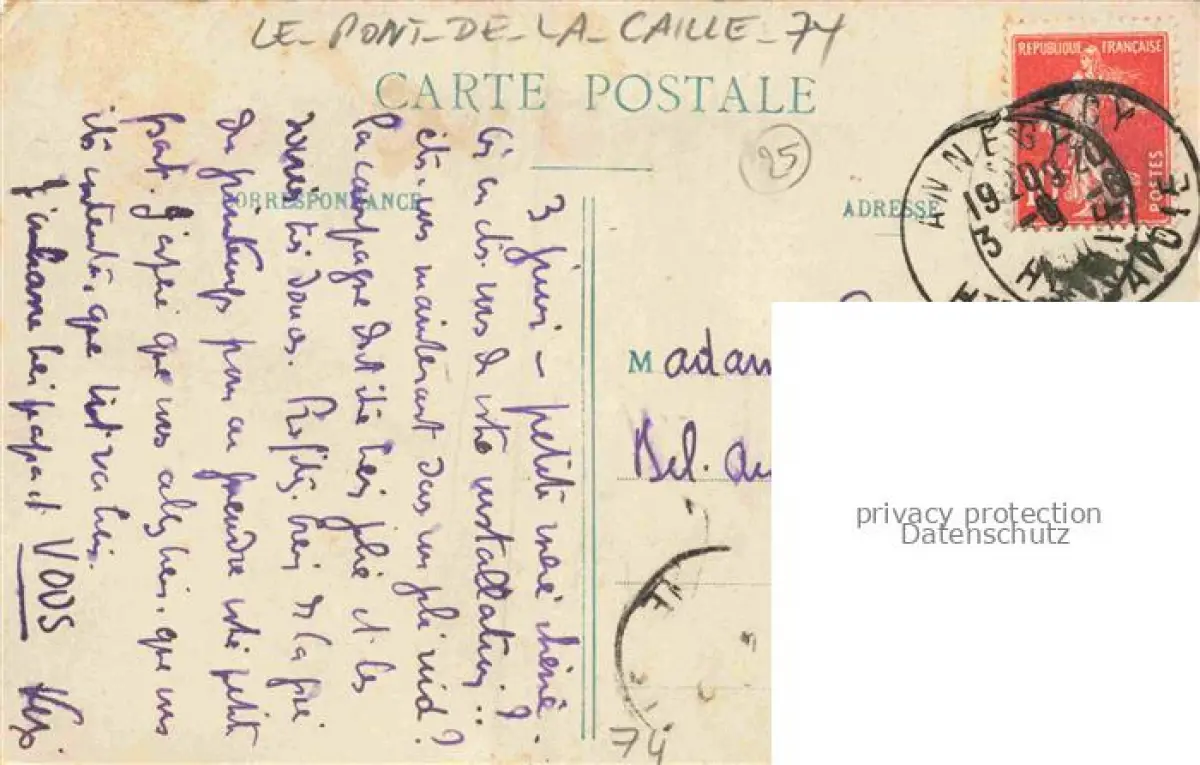 LE-PONT-DE-LA-CAILLE-74
CARTE POSTALE
REPUBLIQUE FRANÇAISE
POSTES
ANNECY
25
CORRESPONDANCE
ADRESSE
3 juin - petite mère chérie.
de votre installation?
êtes-vous maintenant dans un joli nid?
La campagne doit être bien jolie et les
très douces. Profitez bien de la fin
du printemps pour en prendre votre petite
part. J'espère que vous allez bien, que vous
êtes contente, que tout va bien.
J'embrasse bien papa et VOUS
Madam
Bel-
74
privacy protection
Datenschutz